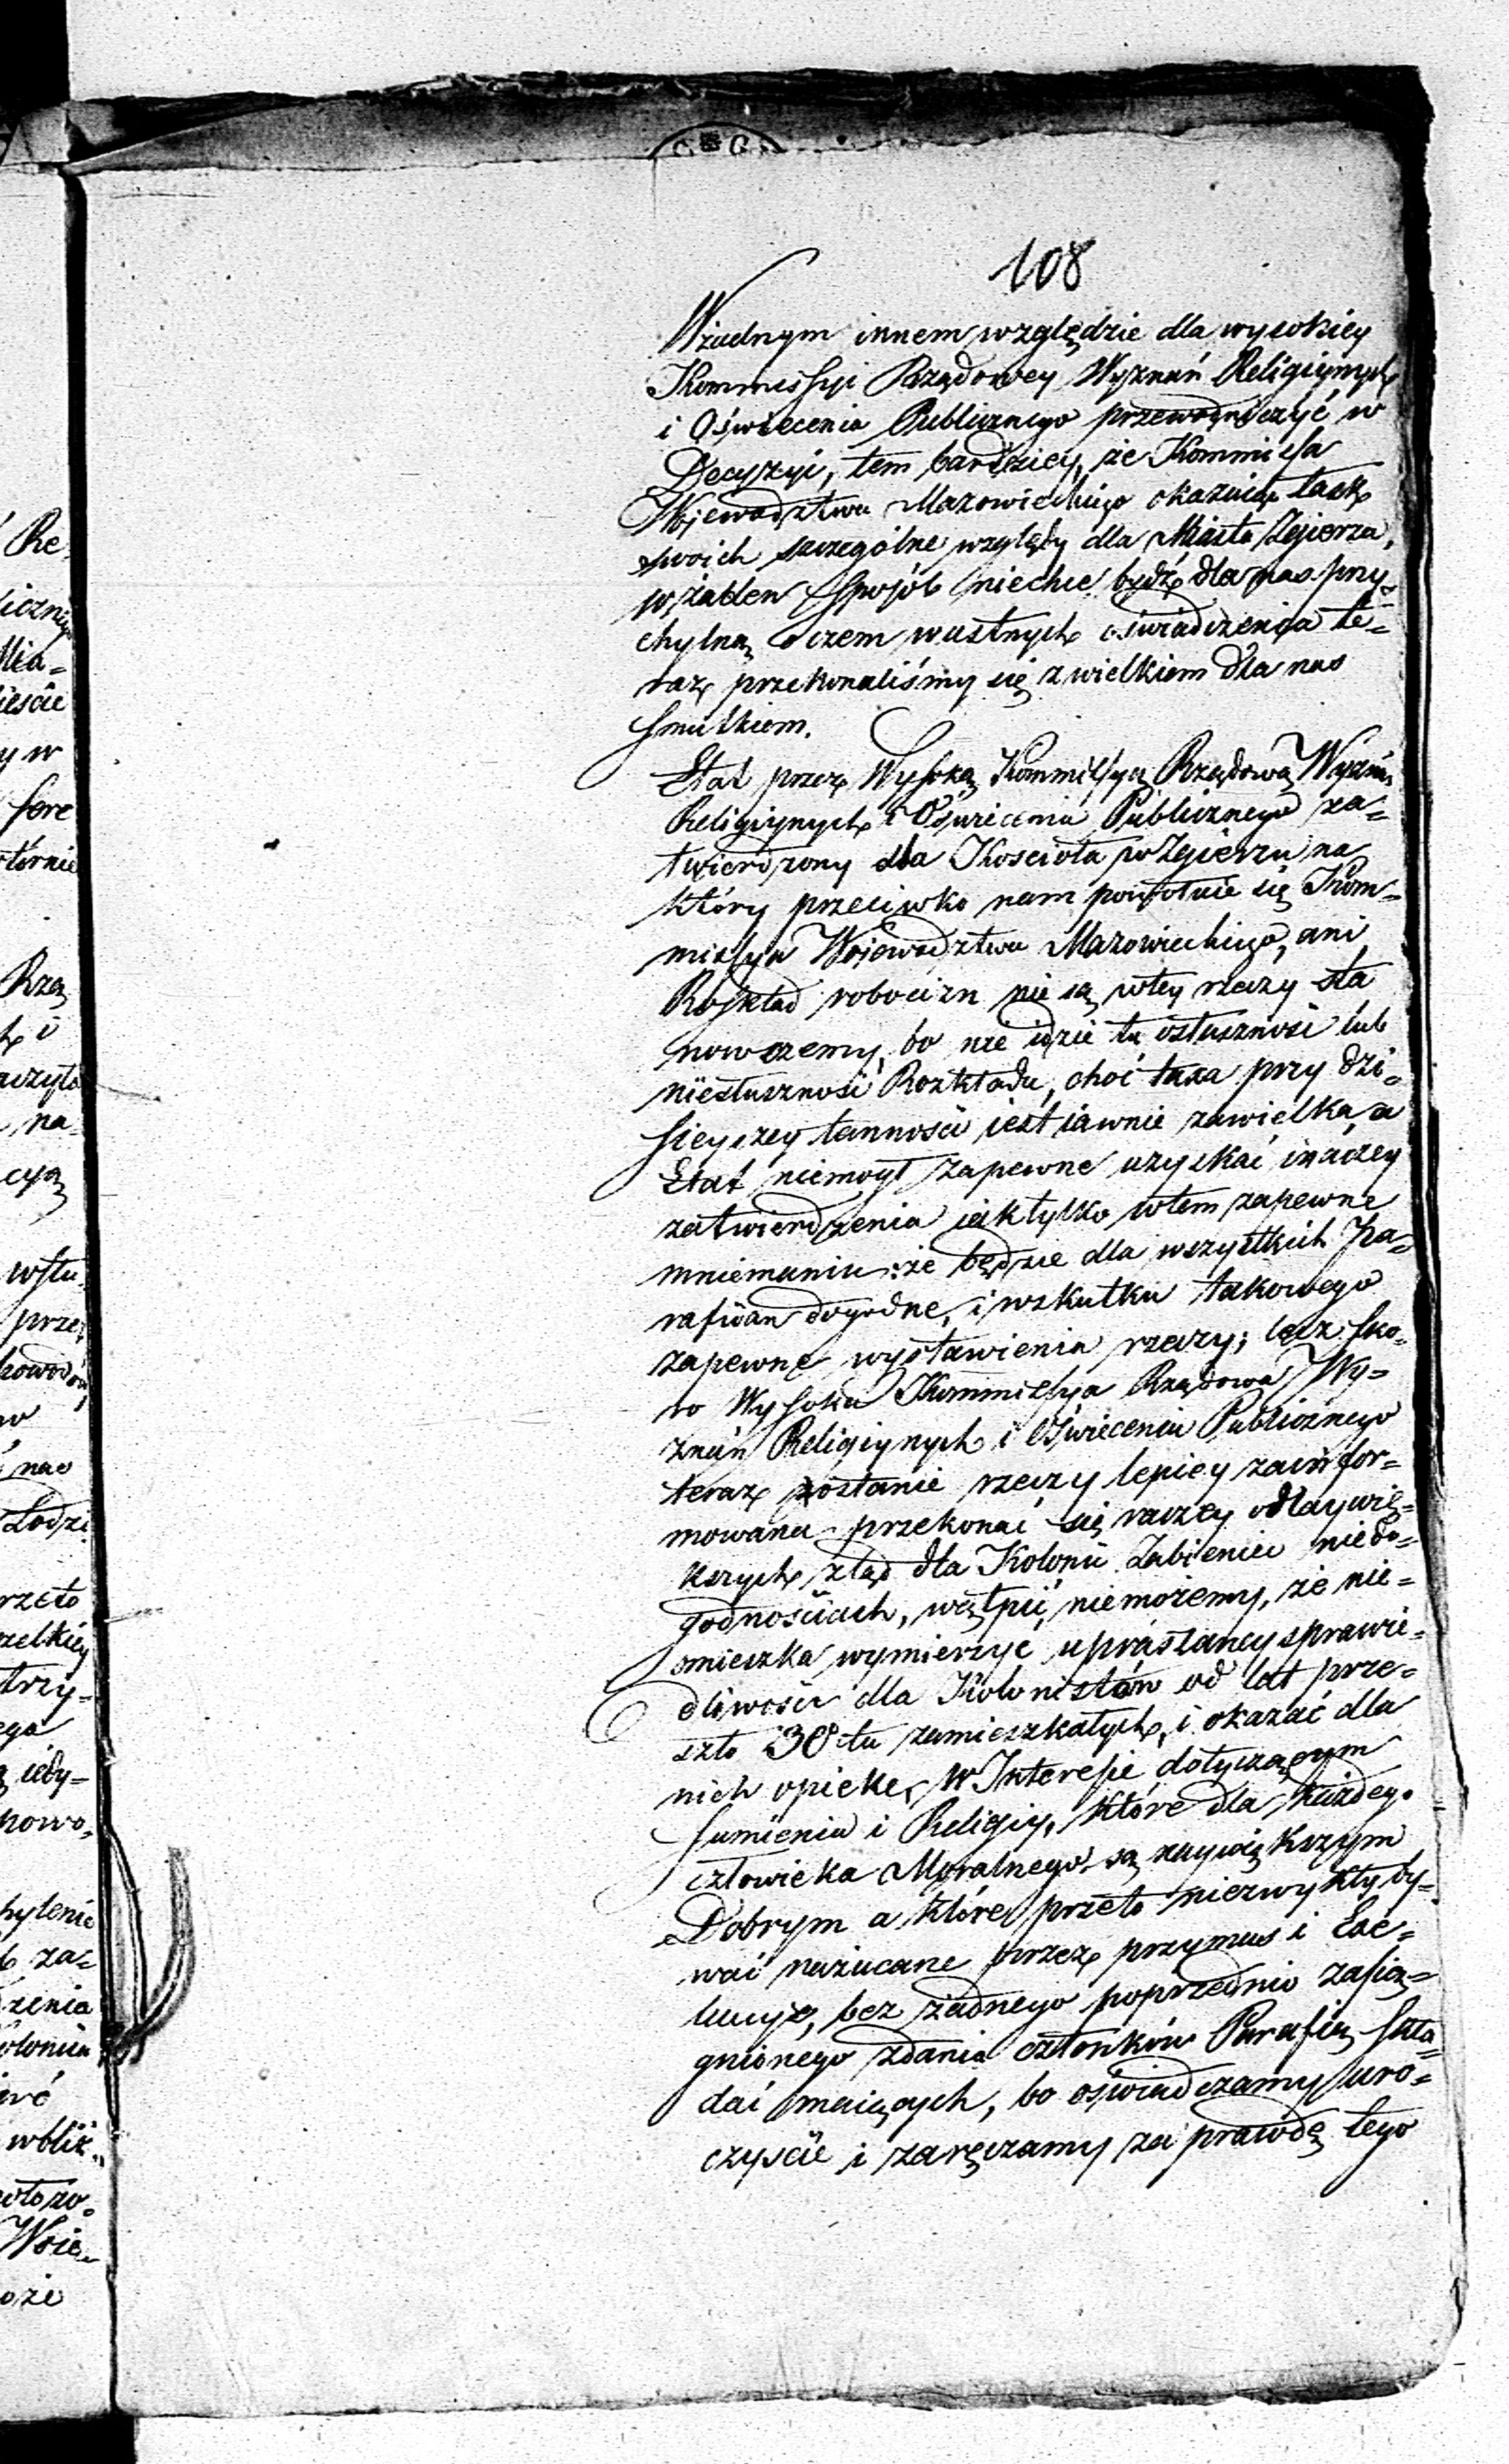 108
Wżadnym innem względzie dla wysokiey
Kommissyi Rządowey Wyznań Religiynych
i Oświecenia Publicznego przewodniczyć w
Decyzyi, tem bardziey, że Kommissa
Wojewodztwa Mazowieckiego okazuiąc
swoich szczególne względy dla Miasta Zgierza,
w żaden sposób niechce bydź dla nas przy=
chylną, o czem wustnych oświadczenia te=
raz przekonaliśmy się z wielkiem dla nas
smutkiem.
Etat przez Wysoką Kommissyą Rządową Wyznań
Religiynych i Oświecenia Publicznego za=
twierdzony dla Kościoła w Zgierzu na
który przeciwko nam powołuie się Kom=
missya Wojewodztwa Mazowieckiego, ani
Rozkład robocizn nie są wtey rzeczy sta
nowczemy, bo nie idzie tu osłuszność lub
niesłuszność Rozkładu, choć taxa przy dzi=
sieyszey tanności iest iawnie zawielka, a
Etat niemógł zapewne uzyskać inaczey
zatwierdzenia iak tylko wtem zapewne
mniemaniu: że będzie dla wszystkich Pa=
rafiian dogodne, i wskutku takowego
zapewne wystawienia rzeczy; lecz sko=
ro Wysoka Kommissya Rządowa Wy=
znań Religiynych i Oświecenia Publicznego
teraz zostanie rzeczy lepiey zainfor=
mowana przekonać się raczey o
kszych ztąd dla Kolonii Żabieniec niedo=
godnościach, wątpić niemożemy, że nie=
omieszka wymierzyć upraszaney sprawie=
dliwości dla Kolonistów od lat prze=
szło 30tu zamieszkałych, i okazać dla
nich opiekę, w Interesie dotyczącym
sumienia i Religiy, które dla każdego
człowieka Moralnego są naywiększym
Dobrym a które przeto niezwykły by=
wać narzucane przez przymus i Exe=
kucyę, bez żadnego poprzednio zasią=
gnionego zdania członków Parafią skła=
dać maiących, bo oświadczamy uro=
czyście i zaręczamy za prawdę tego